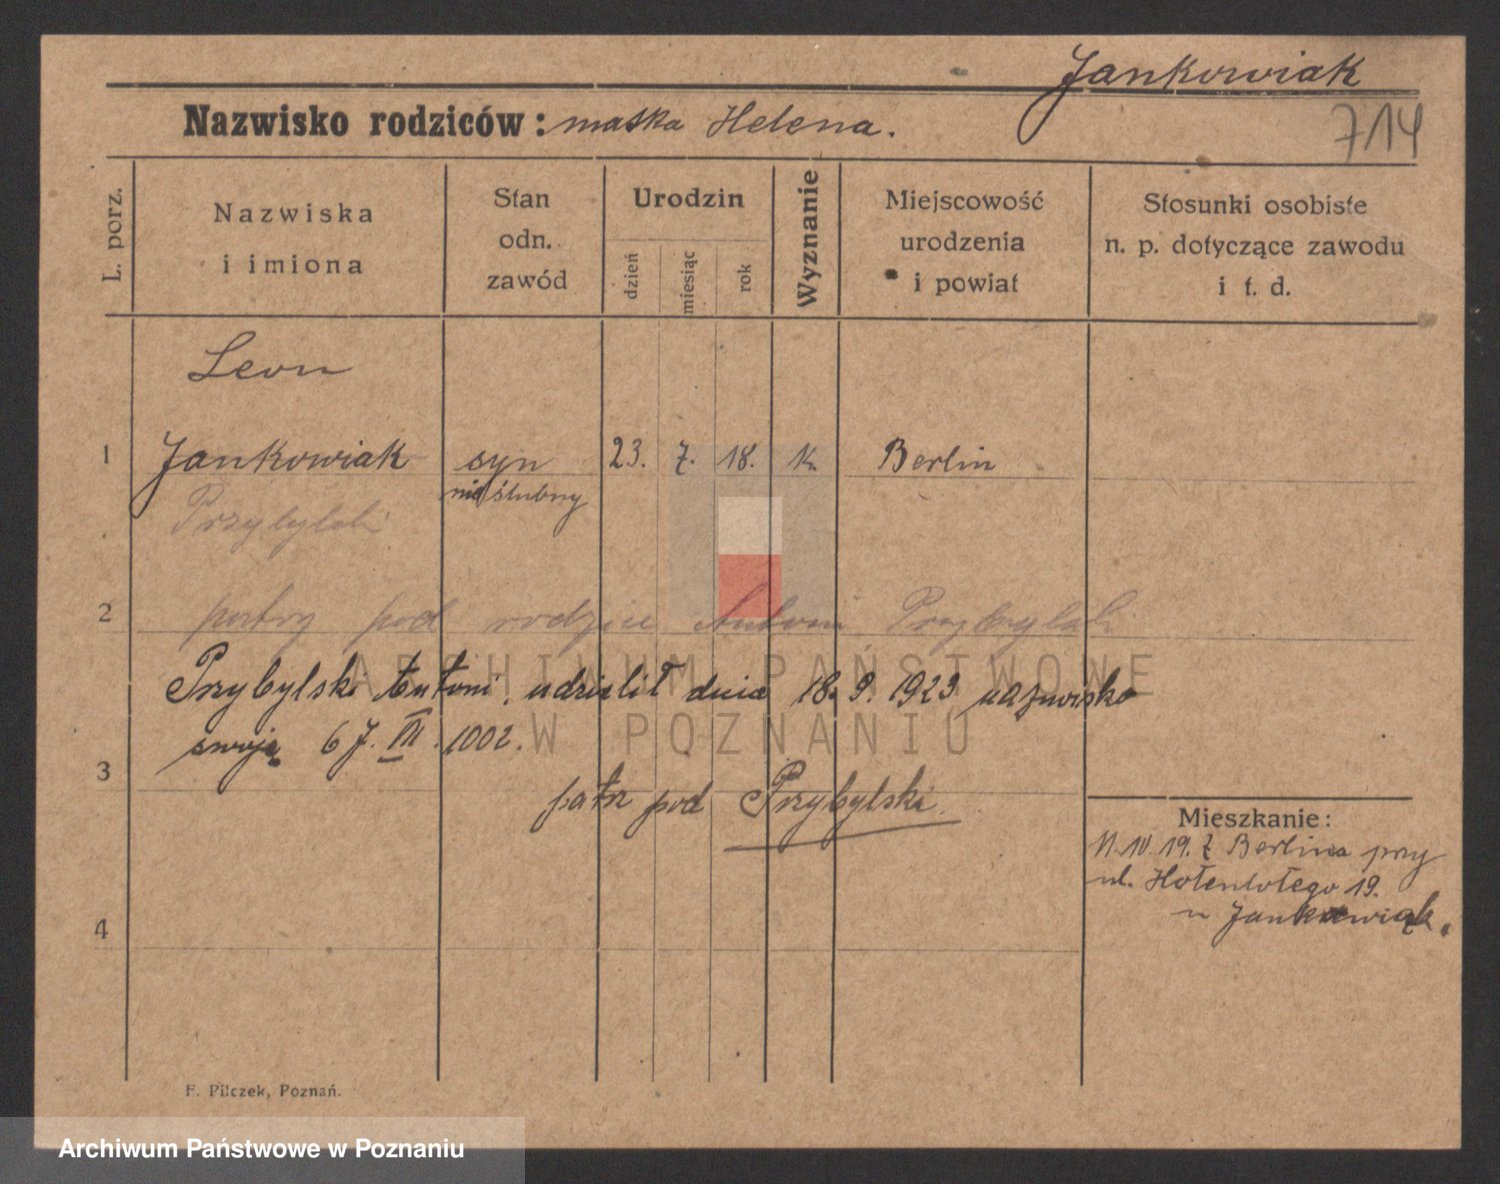 Jankowiak
714
Nazwisko rodziców: matka Helena.
L. porz.
Nazwiska
i imiona
Stan
odn.
zawód
Urodzin
dzień
miesiąc
rok
Wyznanie
Miejscowość
urodzenia
i powiat
Stosunki osobiste
n. p. dotyczące zawodu
i t. d.
Leon
1 Jankowiak syn 23. 7. 18. k. Berlin
nieślubny
Przybylski
2 patrz pod rodzice Antoni Przybylski
Przybylski Antoni, udzielił dnia 18. 9. 1923 nazwisko
swoje 6 J. III. 1002.
3
patrz pod Przybylski
Mieszkanie:
11.IV.19. Z Berlina przy
ul. 19.
u Jankowiak.
4
F. Pilczek, Poznań.
ARCHIWUM PAŃSTWOWE
W POZNANIU
Archiwum Państwowe w Poznaniu